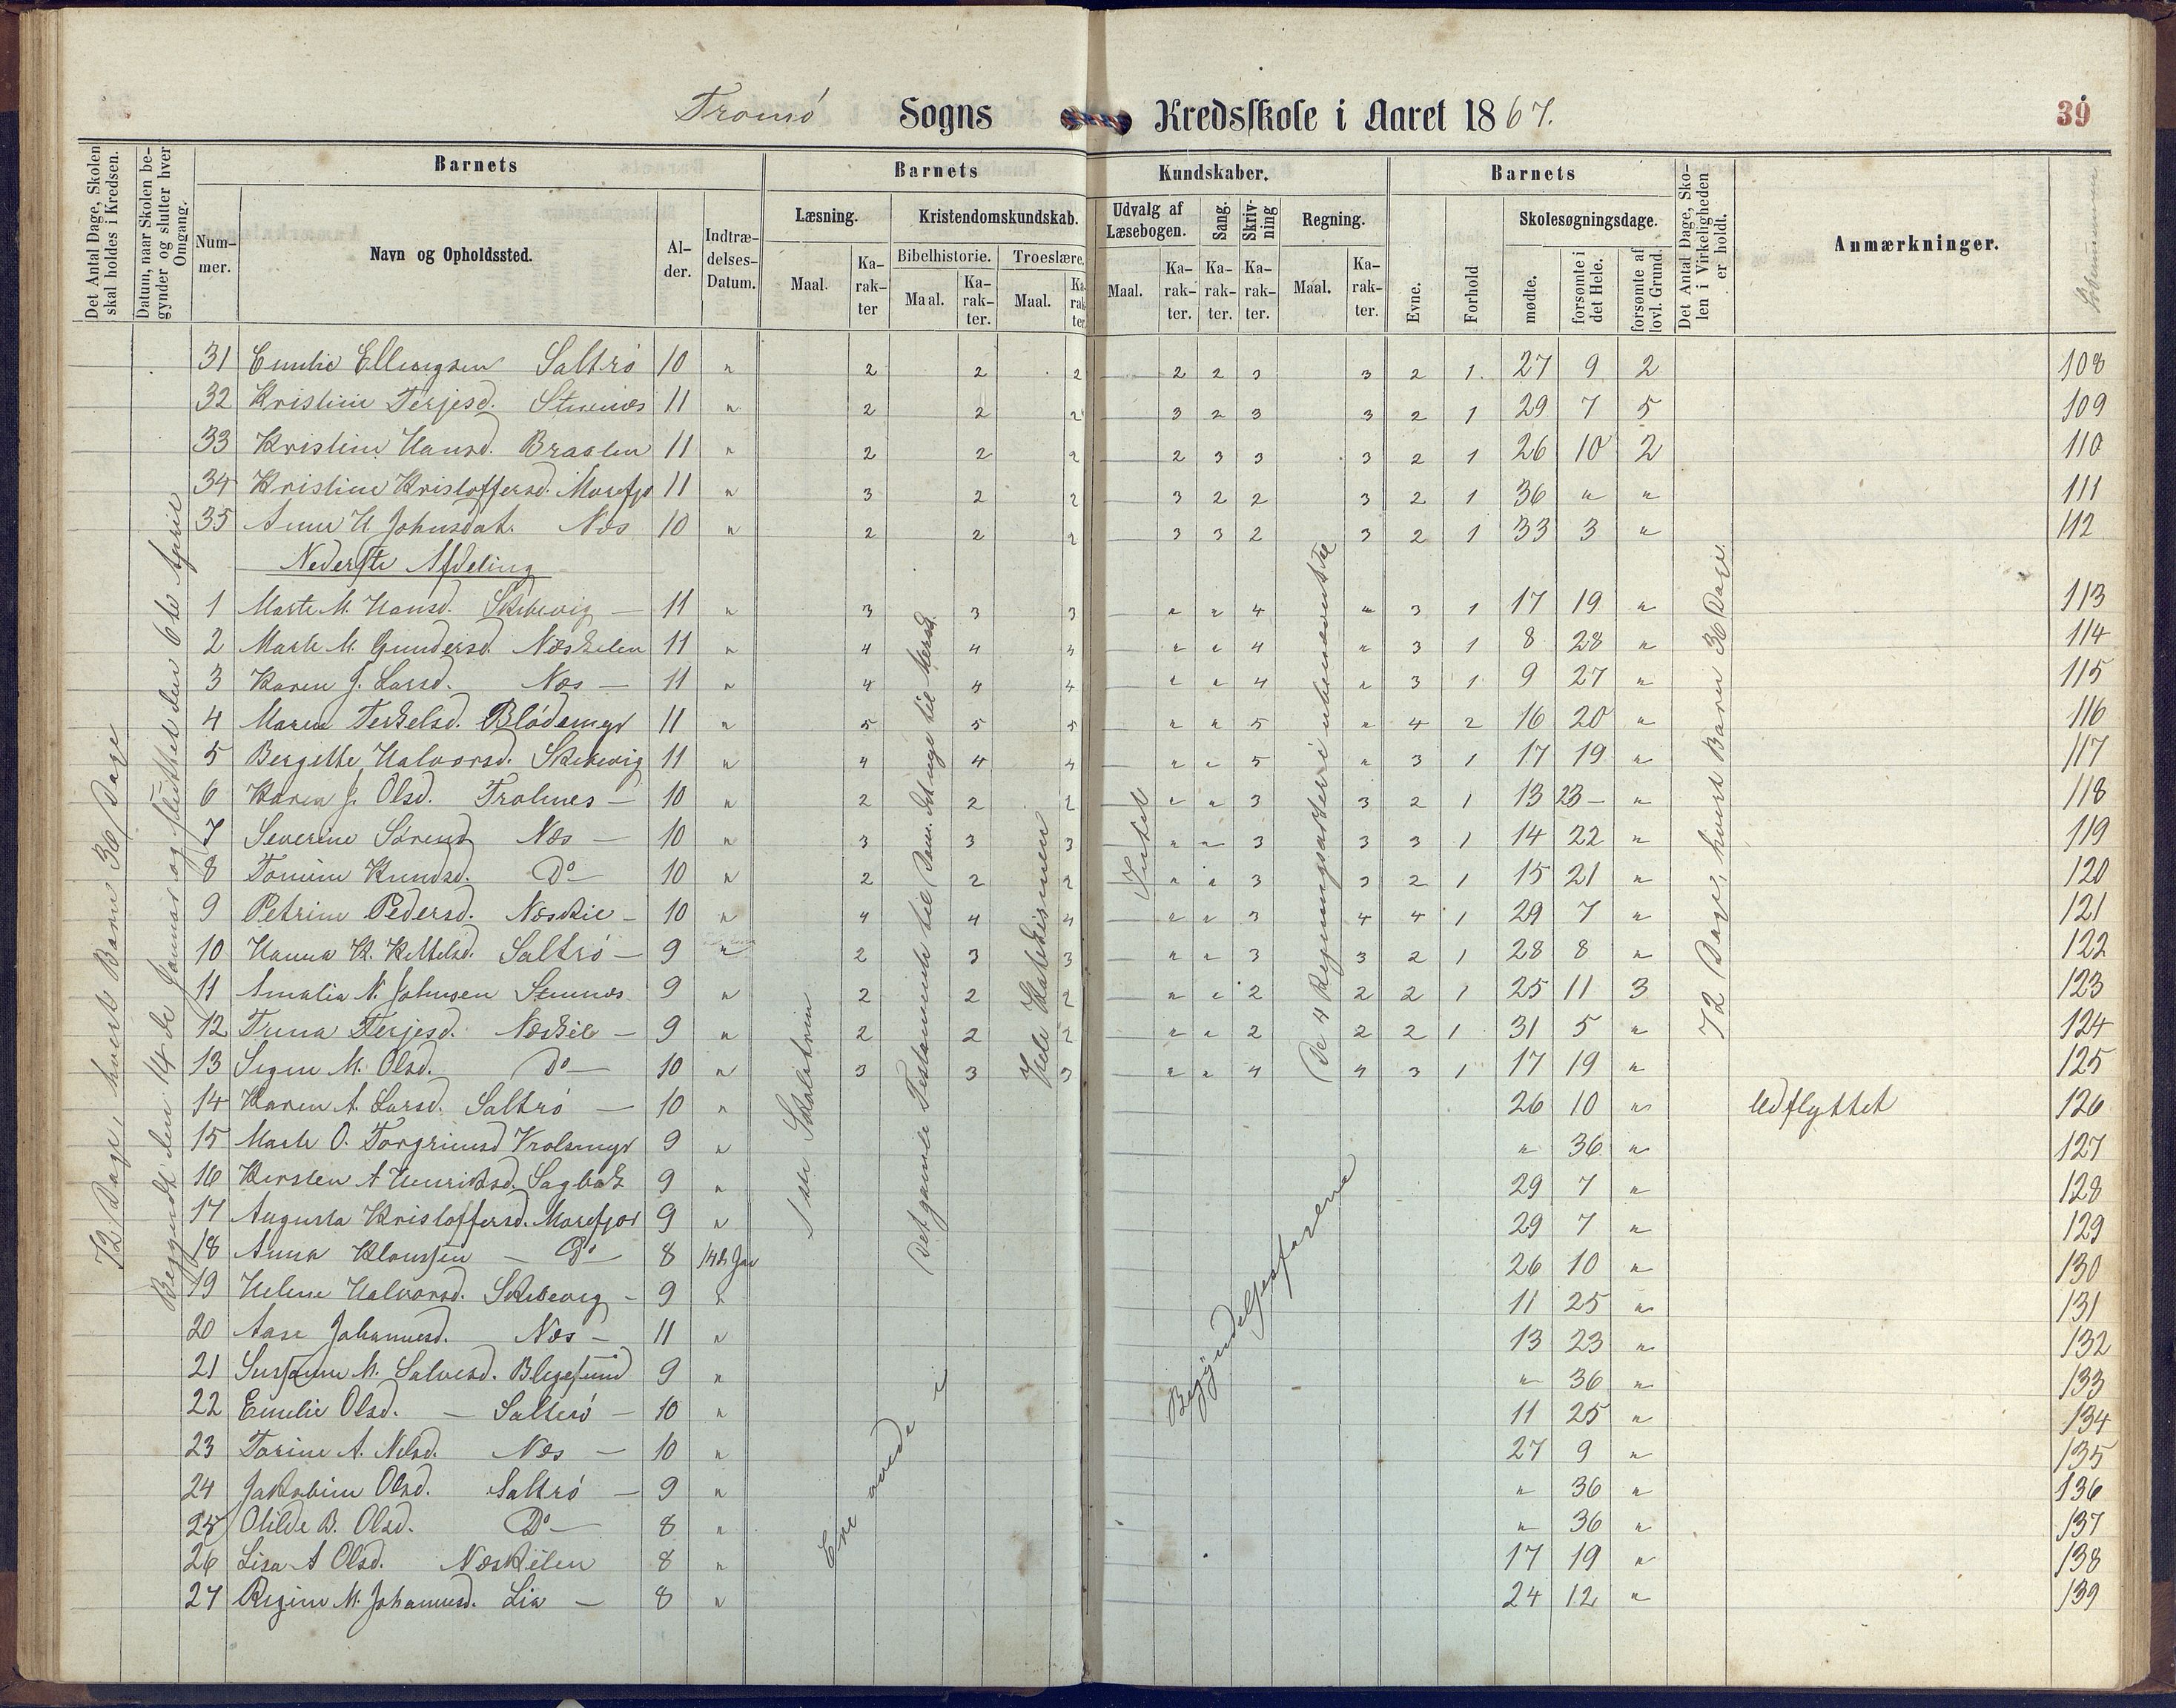 Tromö Sogns Kredsskole i Aaret 1867. 39
Det Antal Dage, Skolen skal holdes i Kredsen.
Datum, naar Skolen begynder og slutter hver Omgang.
Barnets
Barnets Kundskaber.
Barnets
Det Antal Dage, Skolen i Virkeligheden er holdt.
Anmærkninger.
Nummer. Navn og Opholdssted. Alder. Indtrædelses-Datum.
Læsning. Kristendomskundskab. Udvalg af Læsebogen. Sang. Skrivning Regning.
Evne. Forhold Skolesøgningsdage.
Bibelhistorie. Troeslære.
Maal. Karakter Maal. Karakter. Maal. Karakter. Maal. Karakter. Karakter. Karakter. Maal. Karakter.
mødte. forsømte i det Hele. forsømte af lovl. Grund.
72 Dage, hvert Barn 36 Dage
Begyndt den 14de Januar og sluttet den 6te April
31 Emilie Ellingsen Saltrö 10 " 2 2 2 2 2 3 3 2 1 27 9 2 108
32 Kristine Terjesd. Stuenæs 11 " 2 2 2 3 2 3 3 2 1 29 7 5 109
33 Kristine Hansd. Brasten 11 " 2 2 2 2 3 3 3 2 1 26 10 2 110
34 Kristine Kristoffersd. Morefjr 11 " 3 2 2 3 2 2 3 2 1 36 " " 111
35 Anne H. Johnsdat. Næs 10 " 2 2 2 3 3 2 3 2 1 33 3 " 112
Nederste Afdeling
1 Marte M. Hansd. Skibevig 11 " 3 3 3 " " 4 " 3 1 17 19 " 113
2 Marte M. Gundersd. Næskilen 11 " 4 4 4 " " 4 " 3 1 8 28 " 114
3 Karen J. Larsd. Næs 11 " 4 4 4 " " 4 " 3 1 9 27 " 115
4 Maren Terkelsd. Blödemyr 11 " 5 5 5 " " 5 " 4 2 16 20 " 116
5 Bergitte Halvorsd. Skibevig 11 " 4 4 4 " " 5 " 3 1 17 19 " 117
6 Karen J. Olsd. Trolnes 10 " 2 2 2 " " 3 3 2 1 13 23 " 118
7 Severine Sörensd. Næs 10 " 3 3 3 " " 3 3 3 1 14 22 " 119
8 Tomine Knudsd. Do 10 " 2 2 2 " " 3 3 2 1 15 21 " 120
9 Petrine Pedersd. Næskil 10 " 4 4 4 " " 3 4 4 1 29 7 " 121
10 Hanna K. Kittelsd. Saltrö 9 " 2 3 3 " " 3 3 2 1 28 8 " 122
11 Amalia N. Johnsen Stuenæs 9 " 2 2 2 " " 2 2 2 1 25 11 3 123
12 Trina Terjesd. Næskil 9 " 2 2 2 " " 2 2 2 1 31 5 " 124
13 Signe M. Olsd. Do 10 " 3 3 3 " " 4 4 3 1 17 19 " 125
14 Karen A. Larsd. Saltrö 10 " 26 10 " Udflyttet 126
15 Marte O. Torgrimsd 9 " " 36 " 127
16 Kirsten A Henriksd. Sagbak 9 " 29 7 " 128
17 Augusta Kristoffersd. Morefjær 9 " 29 7 " 129
18 Anna Klausen Do 8 14de Jan 26 10 " 130
19 Helene Halvorsd. Skibevig 9 " 11 25 " 131
20 Aase Johannesd. Næs 11 " 13 23 " 132
21 Susanne M. Salvesd. 9 " " 36 " 133
22 Emelie Olsd. Saltrö 10 " 11 25 " 134
23 Torine A. Nilsd. Næs 10 " 27 9 " 135
24 Jakobine Olsd. Saltrö 9 " " 36 " 136
25 Olilde B. Olsd. Do 8 " " 36 " 137
26 Lisa A Olsd. Næskilen 8 " 17 19 " 138
27 Regine M. Johannesd. Lia 8 " 24 12 " 139
Det gamle Testamente til
Hele Katekismen
Intet
De 4 Regningsarter
Ere övede i
Begyndelsesforene
72 Dage, hvert Barn 36 Dage